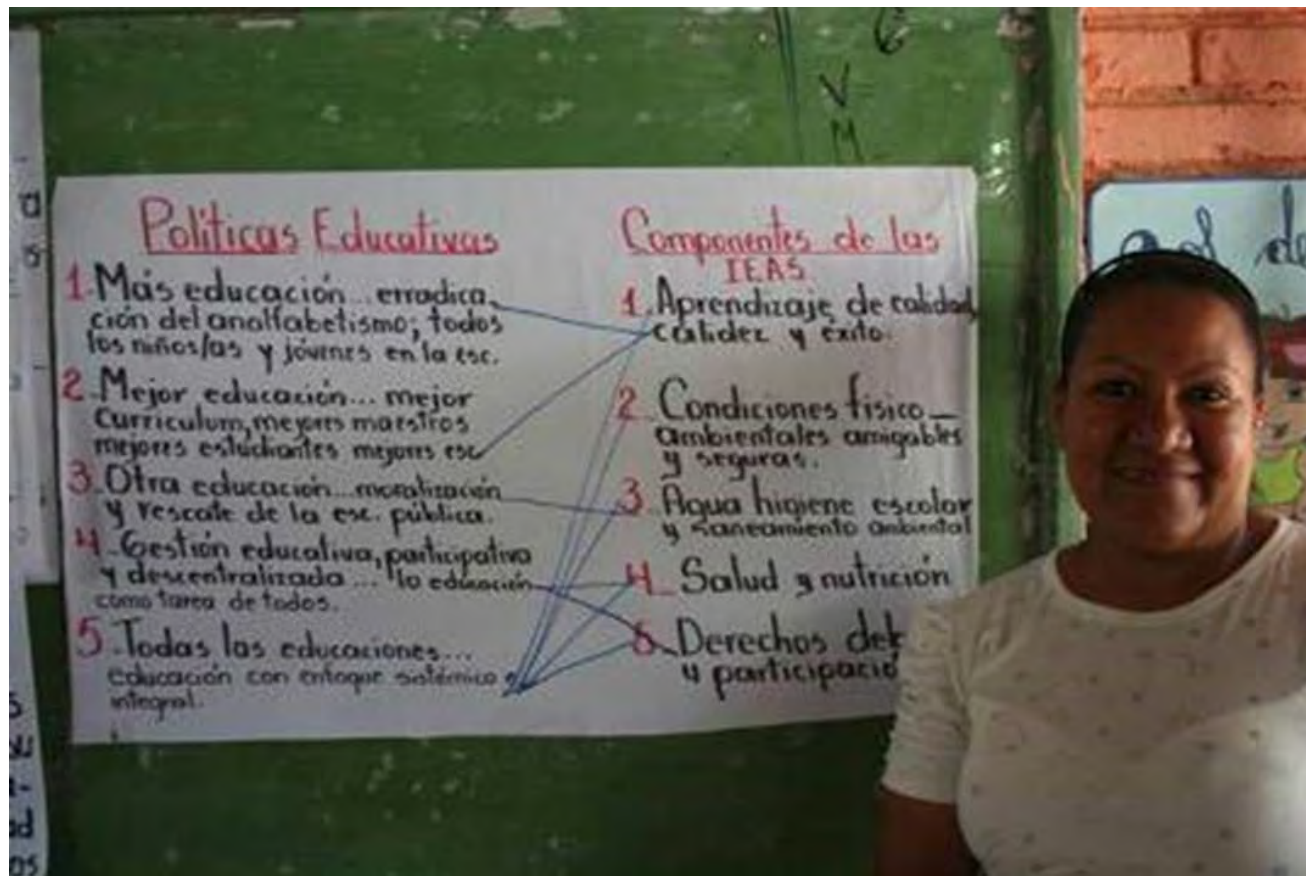 Políticas Educativas
1. Más educación... erradica-
ción del analfabetismo; todos
los niños/as y jóvenes en la esc.
2. Mejor educación... mejor
curriculum, mejores maestros
mejores estudiantes mejores esc.
3. Otra educación... moralización
y rescate de la esc. pública.
4. Gestión educativa, participativa
y descentralizada... la educación
como tarea de todos.
5. Todas las educaciones...
educación con enfoque sistémico e
integral.
Componentes de las
IEAS.
1. Aprendizaje de calidad,
calidez y éxito.
2. Condiciones físico-
ambientales amigables
y seguras.
3. Agua higiene escolar
y saneamiento ambiental
4. Salud y nutrición
5. Derechos deb
y participació
V
M